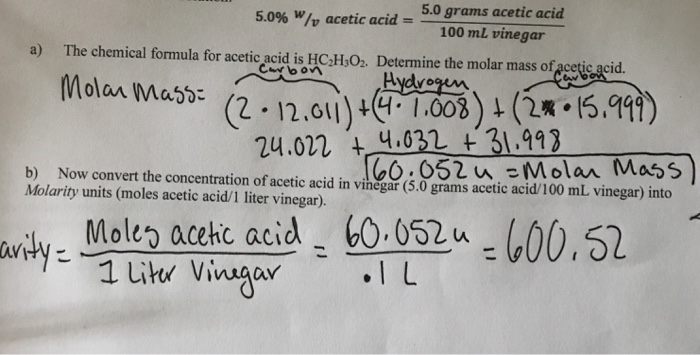 5.0% w/v acetic acid = 5.0 grams acetic acid
100 mL vinegar
a) The chemical formula for acetic acid is HC2H3O2. Determine the molar mass of acetic acid.
Carbon Hydrogen Carbon
Molar Mass= (2 · 12.011) + (4 · 1.008) + (2 · 15.999)
24.022 + 4.032 + 31.998
60.052u = Molar Mass
b) Now convert the concentration of acetic acid in vinegar (5.0 grams acetic acid/100 mL vinegar) into
Molarity units (moles acetic acid/1 liter vinegar).
arity = Moles acetic acid = 60.052u = 600.52
1 Liter Vinegar .1 L